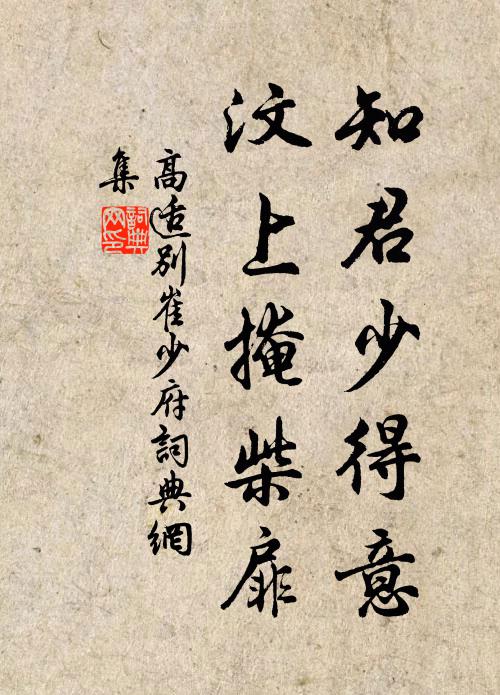 知君少得意
汶上掩柴扉
高适別崔少府詞典網
集
詞典
网印